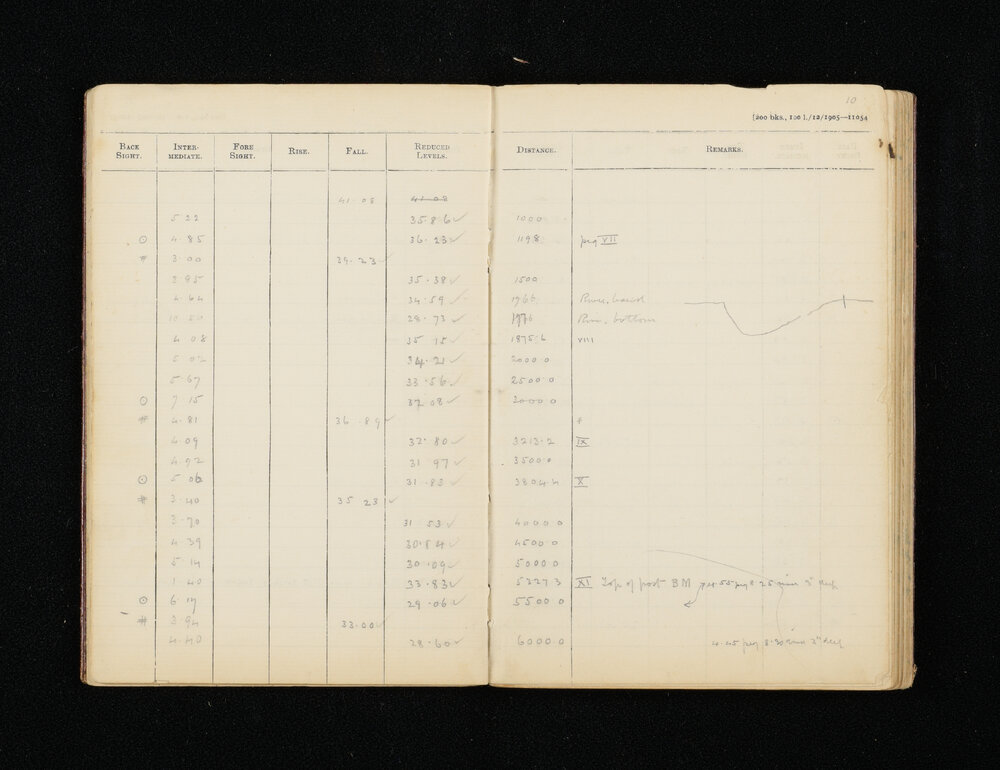 10
[200 bks., 100 l./12/1905—11054
BACK SIGHT. INTER-MEDIATE. FORE SIGHT. RISE. FALL. REDUCED LEVELS. DISTANCE. REMARKS.
41·08 41·08
5 22 35 86 ✓ 1000
⊙ 4·85 36·23 ✓ 1198 peg VII
# 3·00 39·23 ✓
35·38 ✓ 1500
4·64 34·59 ✓ 1966 River bank
28·73 ✓ River bottom
4 08 35 15 ✓ 1875·6 VIII
5 02 34·21 ✓ 2000 0
5 67 33·56 ✓ 2500 0
⊙ 7 15 32 08 ✓
# 4·81 36·89 ✓ #
4 09 32·80 ✓ 3213·2 IX
4 92 31 97 ✓ 3500 0
⊙ 5 06 31·83 ✓ 3804 4 X
# 3·40 35 23 ✓
3·70 31 53 ✓ 4000 0
4 39 30·84 ✓ 4500 0
5·14 30·09 ✓ 5000 0
1·40 33·83 ✓ 5227 3 XI Top of post BM
⊙ 6·17 29·06 ✓ 5500 0
# 3·94 33·00 ✓
4·40 28·60 ✓ 6000 0